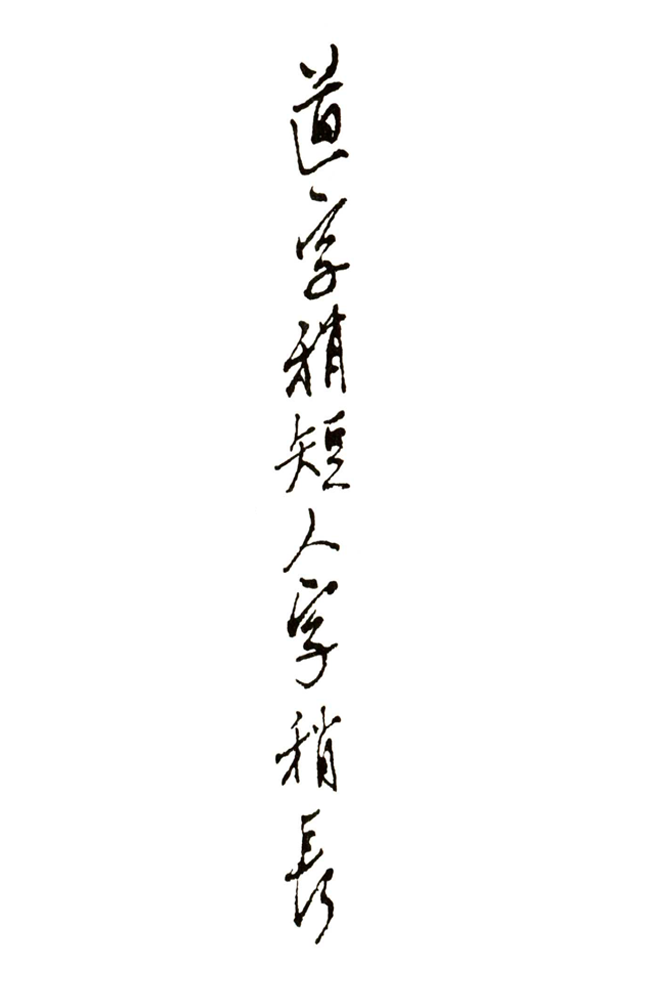 道字稍短人字稍長